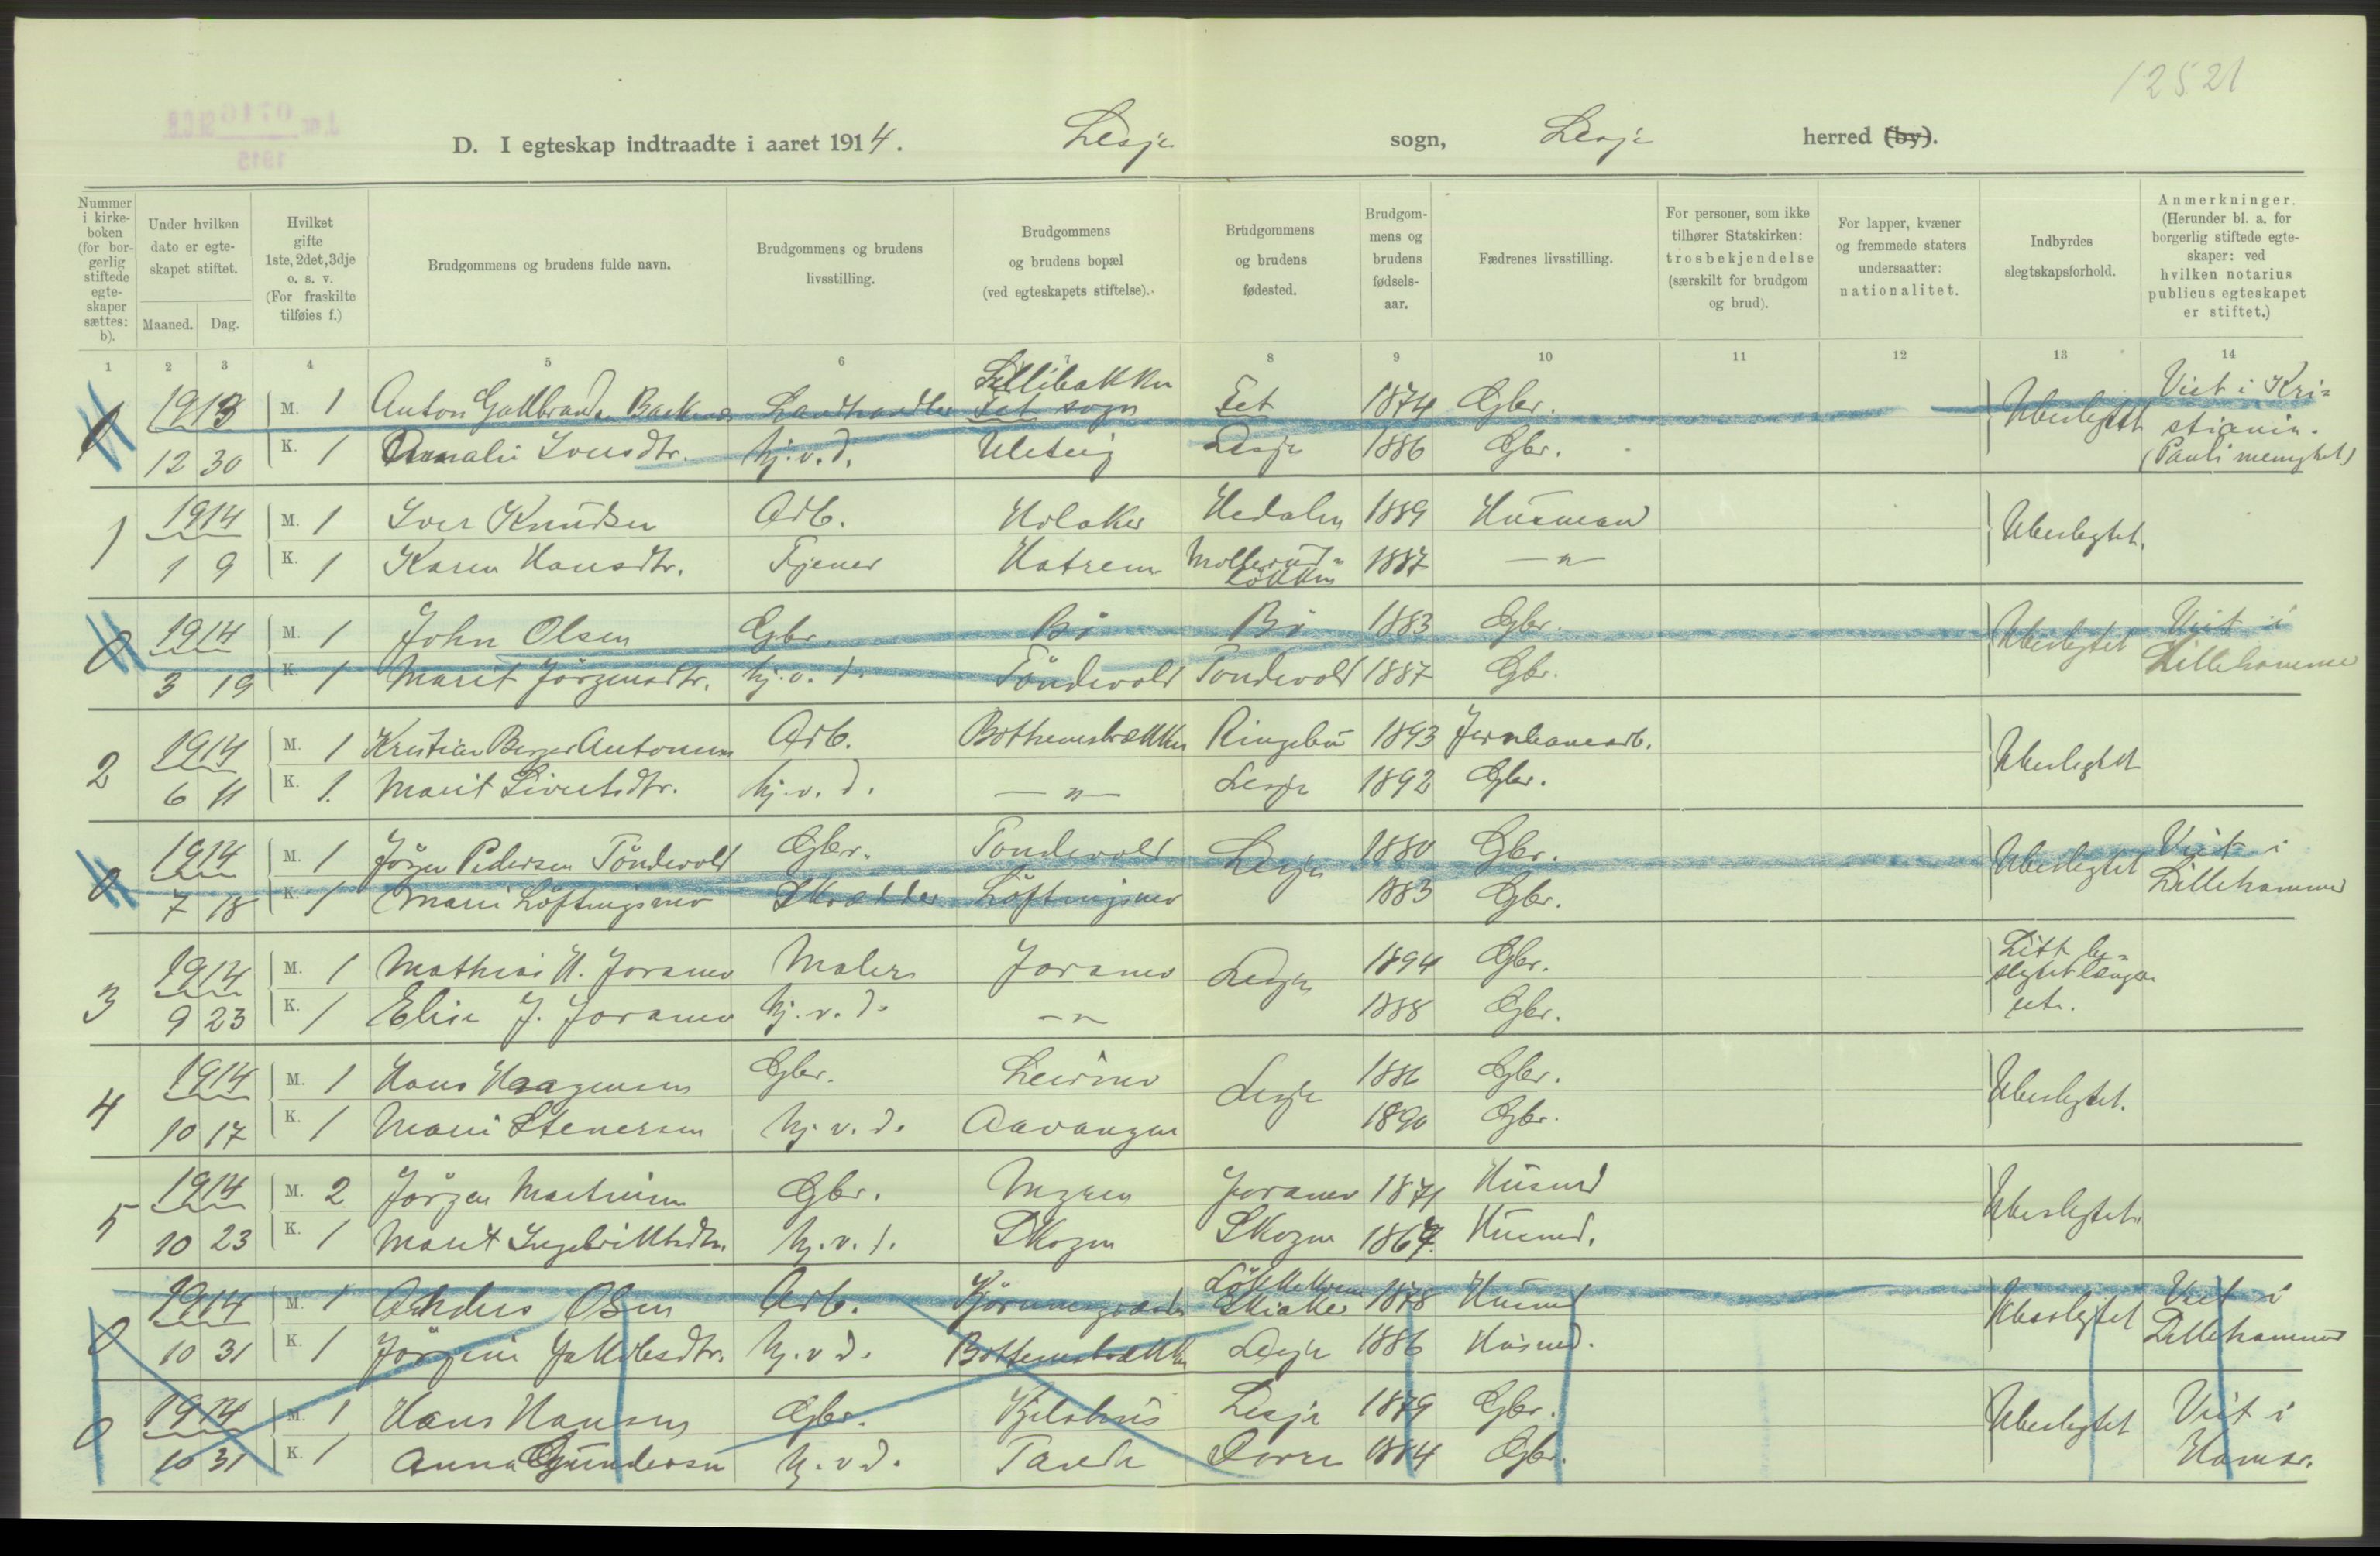 12521
D. I egteskap indtraadte i aaret 1914. Lesje sogn, Lesje herred (by).
Nummer i kirkeboken (for borgerlig stiftede egteskaper sættes: b).
Under hvilken dato er egteskapet stiftet.
Maaned. Dag.
Hvilket gifte 1ste, 2det, 3dje o. s. v. (For fraskilte tilføies f.)
Brudgommens og brudens fulde navn.
Brudgommens og brudens livsstilling.
Brudgommens og brudens bopæl (ved egteskapets stiftelse).
Brudgommens og brudens fødested.
Brudgommens og brudens fødselsaar.
Fædrenes livsstilling.
For personer, som ikke tilhører Statskirken: trosbekjendelse (særskilt for brudgom og brud).
For lapper, kvæner og fremmede staters undersaatter: nationalitet.
Indbyrdes slegtskapsforhold.
Anmerkninger. (Herunder bl. a. for borgerlig stiftede egteskaper: ved hvilken notarius publicus egteskapet er stiftet.)
1 2 3 4 5 6 7 8 9 10 11 12 13 14
0 1913 M. 1 Anton Gulbrandsen Bakken Landhandler Lillibakken Fet sogn Fet 1874 Gbr. Ubeslegtet Viet i Kri-
12 30 K. 1 Iversdtr. hj.v.d. Uleteig Lesje 1886 Gbr. stiania.
(Pauli menighet)
1 1914 M. 1 Iver Knudsen Arb. Holaker Hedalen 1889 Husmand Ubeslegtet.
1 9 K. 1 Karen Hansdtr. Tjener Hatrem Mollerud-løkken 1887 -"-
0 1914 M. 1 John Olsen Gbr. Bø Bø 1883 Gbr. Ubeslegtet Viet i
3 19 K. 1 Marit Jørgensdtr. hj.v.d. Tøndevold Tondevold 1887 Gbr. Lillehammer
2 1914 M. 1 Kristian Berger Antonsen Arb. Bothemsbrækken Ringebu 1893 Jernbanearb. Ubeslegtet
6 11 K. 1. Marit Sivertsdtr. hj.v.d. -"- Lesje 1892 Gbr.
0 1914 M. 1 Jørgen Pedersen Tøndevold Gbr. Tondevold Lesje 1880 Gbr. Ubeslegtet Viet i
7 18 K. 1 Mari Løftingsmo Skrædder Løftingsmo 1883 Gbr. Lillehammer
3 1914 M. 1 Mathias H. Joramo Maler Joramo Lesje 1894 Gbr. Litt be-
slegtet længer
ute.
9 23 K. 1 Elise J. Joramo hj.v.d. -"- 1888 Gbr.
4 1914 M. 1 Hans Haagensen Gbr. Leirmo Lesje 1886 Gbr. Ubeslegtet.
10 17 K. 1 Mari Stenersen hj.v.d. Aavangen 1890 Gbr.
5 1914 M. 2 Jørgen Mathisen Gbr. Myren Joramo 1871 Husmd Ubeslegtet.
10 23 K. 1 Marit Ingebriktsdtr. hj.v.d. Skogen Skogen 1867. Husmd.
0 1914 M. 1 Anders Olsen Arb. Skiaker 1878 Husmd Ubeslegtet Viet i
10 31 K. 1 Jørgine Jakobsdtr. hj.v.d. Bottemsbrækken Lesje 1886 Husmd. Lillehammer
0 1914 M. 1 Hans Hansen Gbr. Kjelshus Lesje 1879 Gbr. Ubeslegtet Viet i
10 31 K. 1 Anna Gundersen hj.v.d. Tande Dovre 1884 Gbr. Hamar.